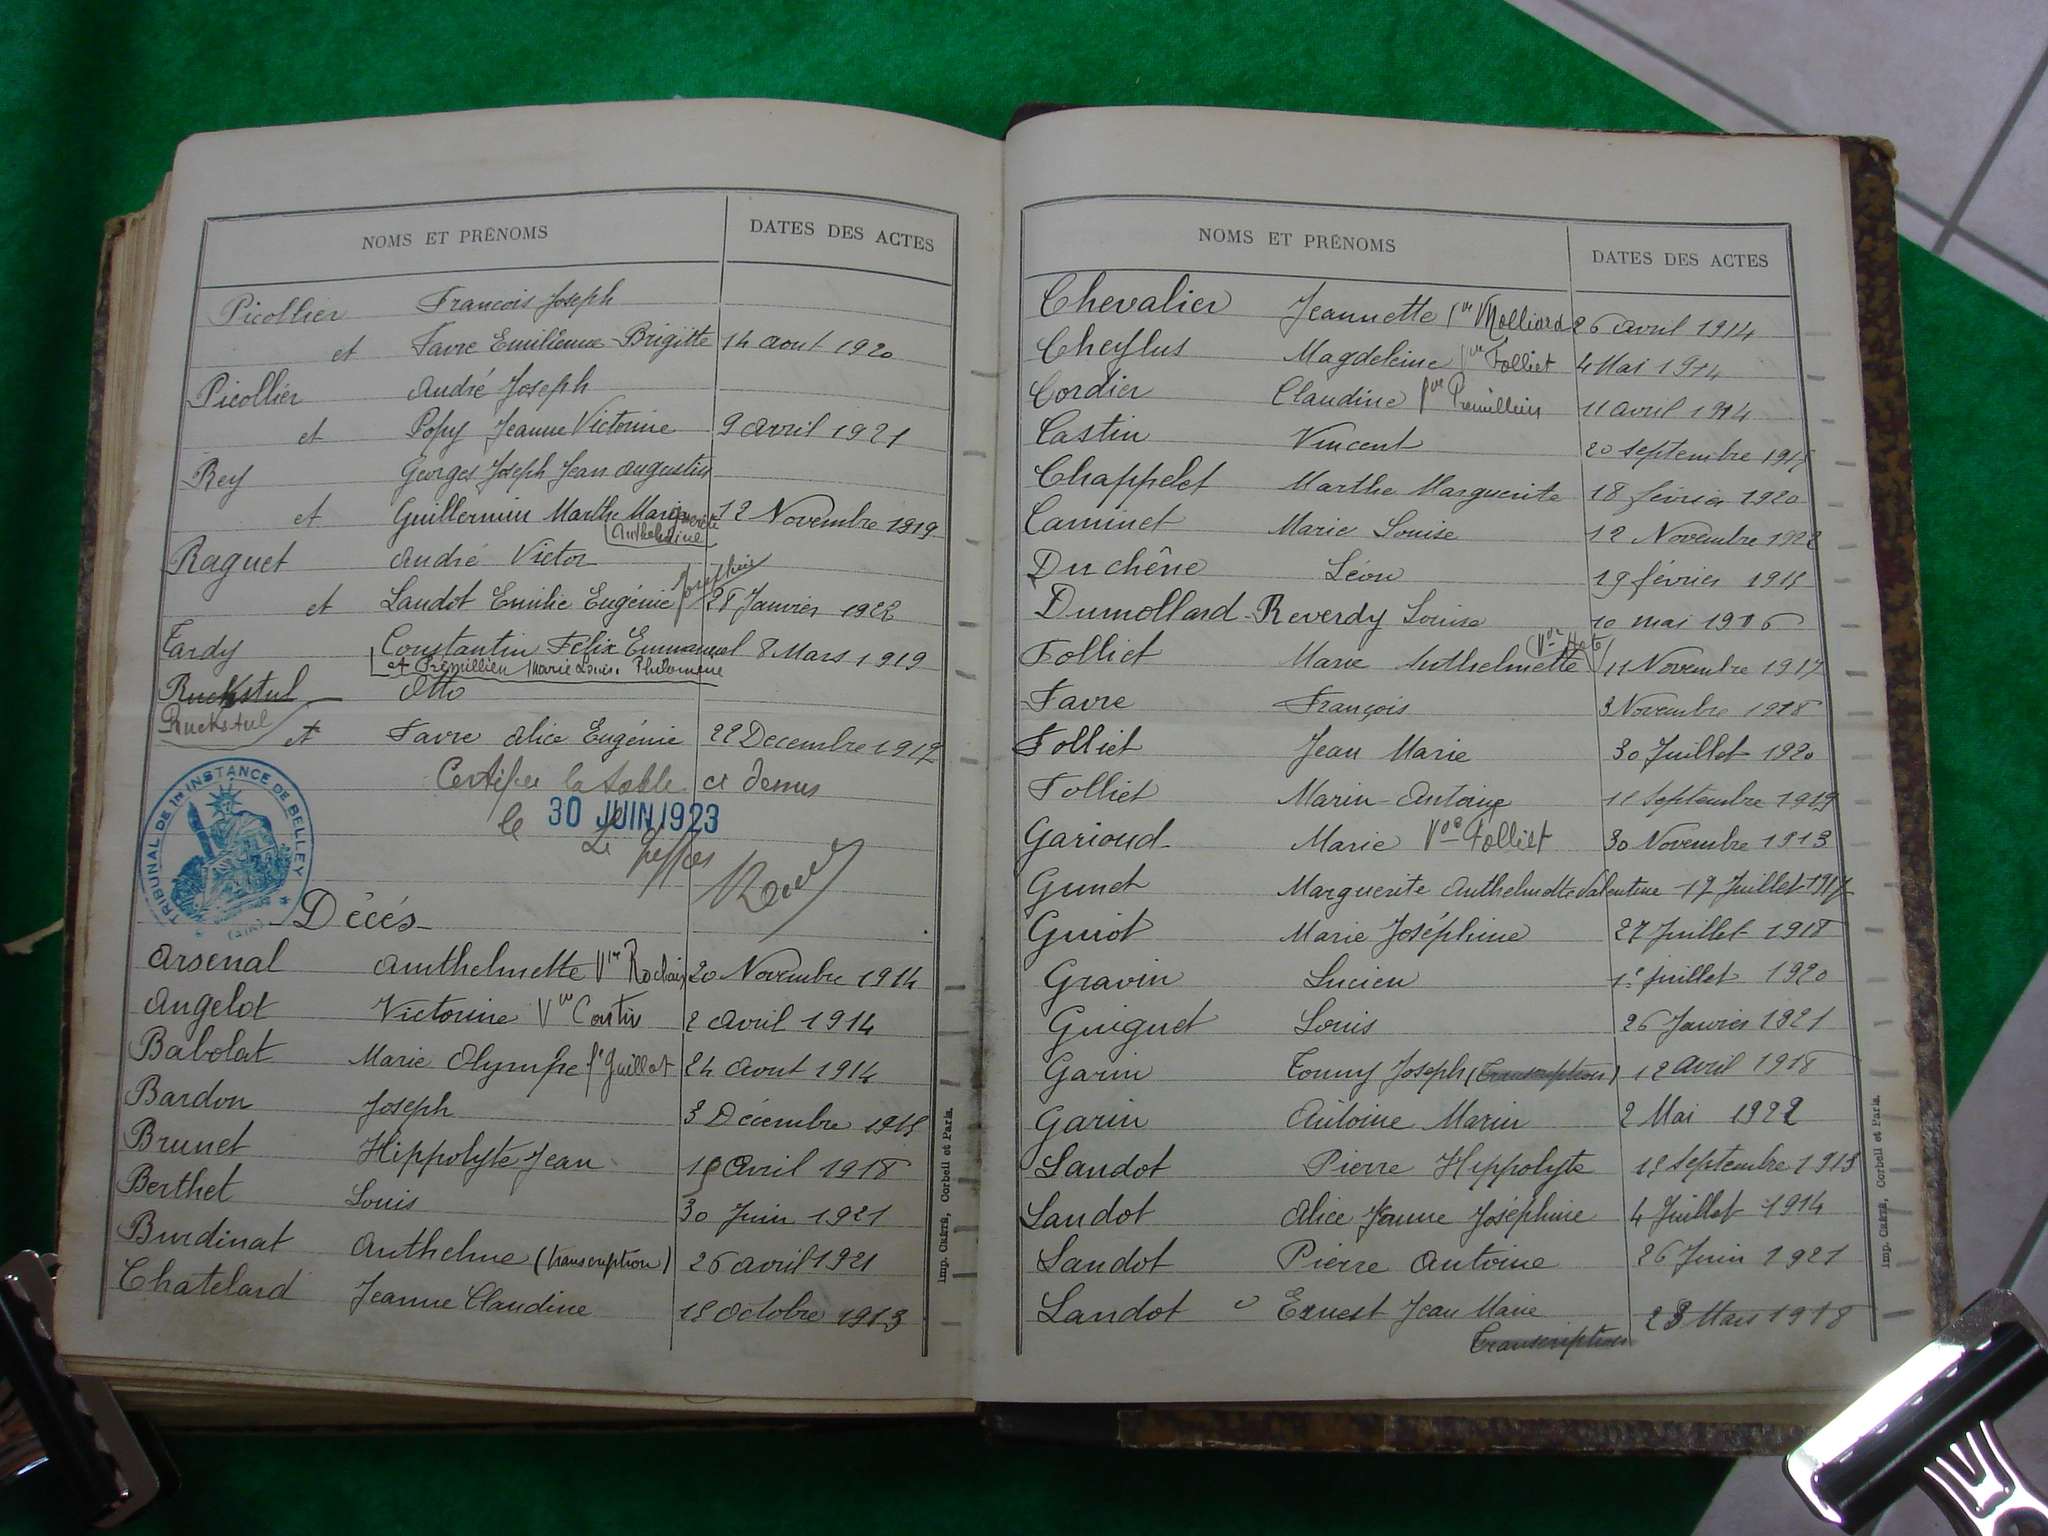 NOMS ET PRÉNOMS DATES DES ACTES
Picollier François Joseph
et Favre Emilienne Brigitte 14 aout 1920
Picollier André Joseph
et Jeanne Victorine 9 avril 1921
Rey Georges Joseph Jean Augustin
et Guillermin Marthe Marguerite 12 Novembre 1919
Anthelmine
Raguet André Victor
et Landot Emilie Eugénie Joséphine Janvier 1922
Tardy Constantin Félix Emmanuel 8 Mars 1919
et Premillieu Marie Louise Philomène
Ruckstul Otto
Ruckstul
et Favre Alice Eugénie 22 Decembre 1917
Certifiée la table ci dessus
le 30 JUIN 1923
Le Greffier
TRIBUNAL DE 1re INSTANCE DE BELLEY
(AIN)
Décés
Arsenal Anthelmette Vve 20 Novembre 1914
Angelot Victorine Vve 2 avril 1914
Babolat Marie Olympe fe Guillot 24 aout 1914
Bardon Joseph 3 Décembre
Brunet Hippolyte Jean avril 1918
Berthet Louis 30 Juin 1921
Burdinat Anthelme (transcription) 26 avril 1921
Chatelard Jeanne Claudine Octobre 1913
Imp. Crété, Corbeil et Paris.
NOMS ET PRÉNOMS DATES DES ACTES
Chevalier Jeannette Molliard 26 avril 1914
Cheylus Magdeleine Folliet 4 Mai 1914
Cordier Claudine Premillieu 11 avril 1914
Castin Vincent 20 septembre
Chappelet Marthe Marguerite 18 février 1920
Caminet Marie Louise 12 Novembre 1922
Duchêne Léon 19 février
Dumollard-Reverdy Louise 10 mai 1916
Folliet Marie Anthelmette 11 Novembre 1917
Favre François 3 Novembre 1918
Folliet Jean Marie 30 Juillet 1920
Folliet Marin-Antoine 11 septembre 1919
Garioud Marie Vve Folliet 30 Novembre 1913
Gunet Marguerite Anthelmette Valentine 17 Juillet 1917
Guiot Marie Joséphine 27 Juillet 1918
Gravin Lucien 1er juillet 1920
Guiguet Louis 26 Janvier 1921
Garin Tonny Joseph (transcription) 12 avril 1918
Garin Antoine Marin 2 Mai 1922
Landot Pierre Hippolyte septembre 1913
Landot Alice Jeanne Joséphine 4 Juillet 1914
Landot Pierre Antoine 26 Juin 1921
Landot Ernest Jean Marie 23 Mars 1918
transcription
Imp. Crété, Corbeil et Paris.